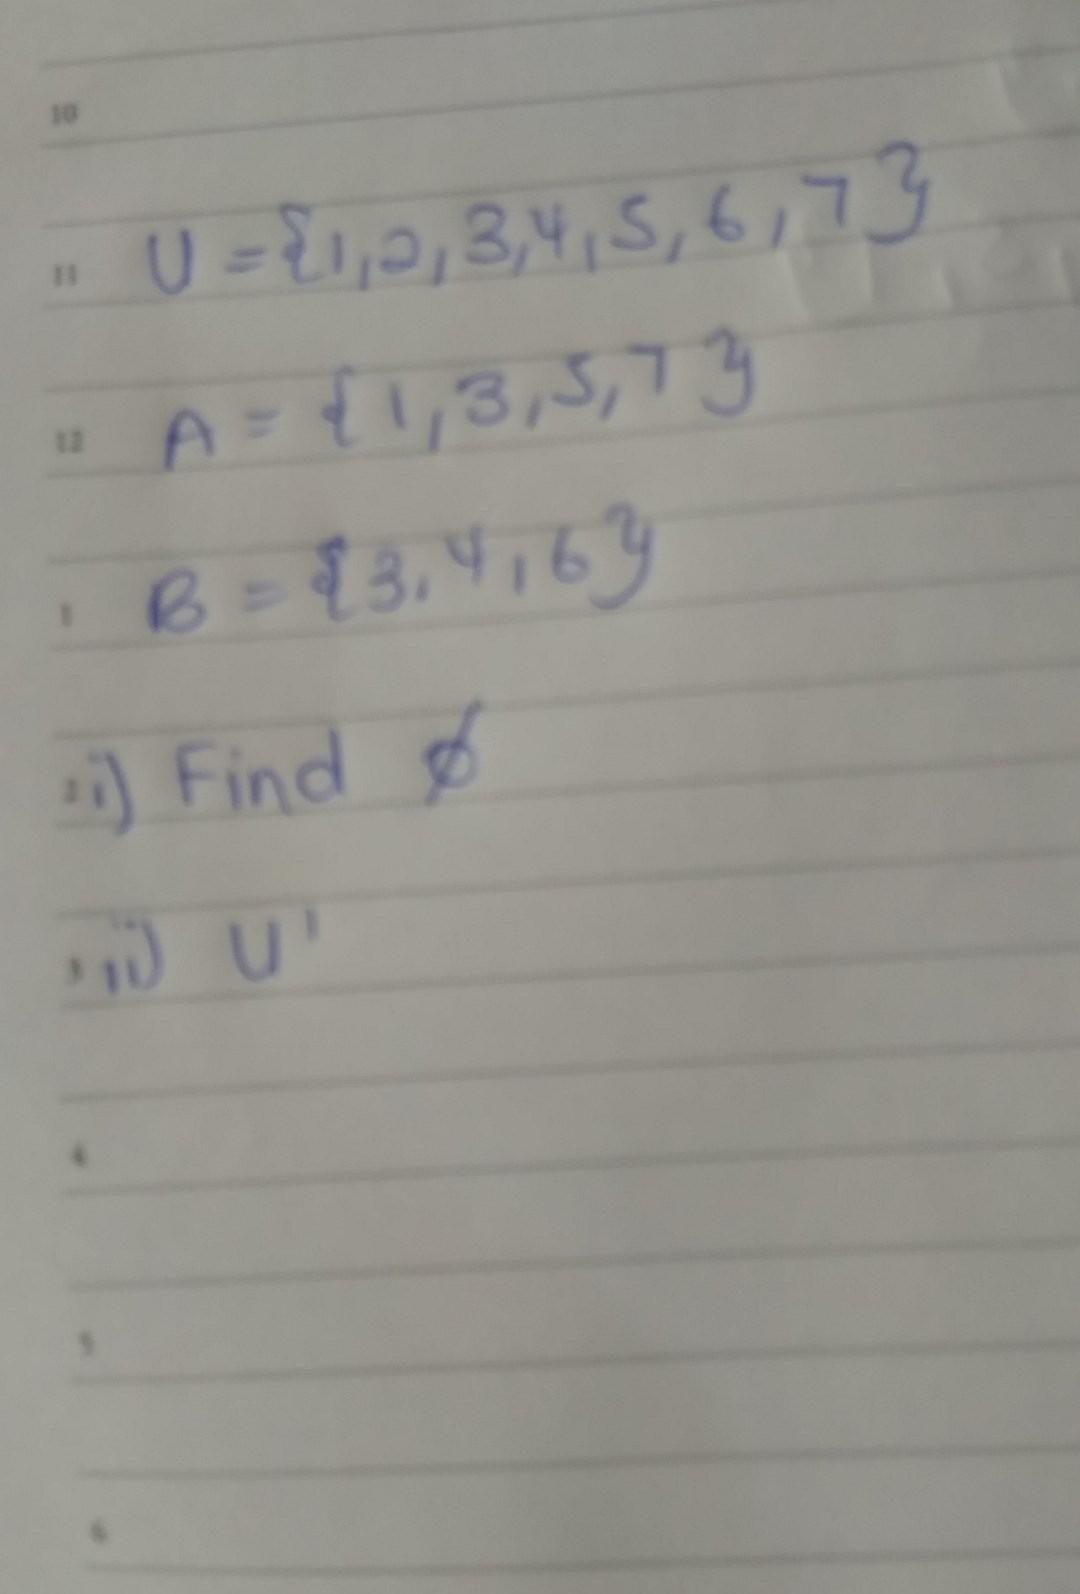 10
11 U = {1,2,3,4,5,6,7}
12 A = {1,3,5,7}
1 B = {3,4,6}
2 i) Find ∅
3 ii) U'
4
5
6